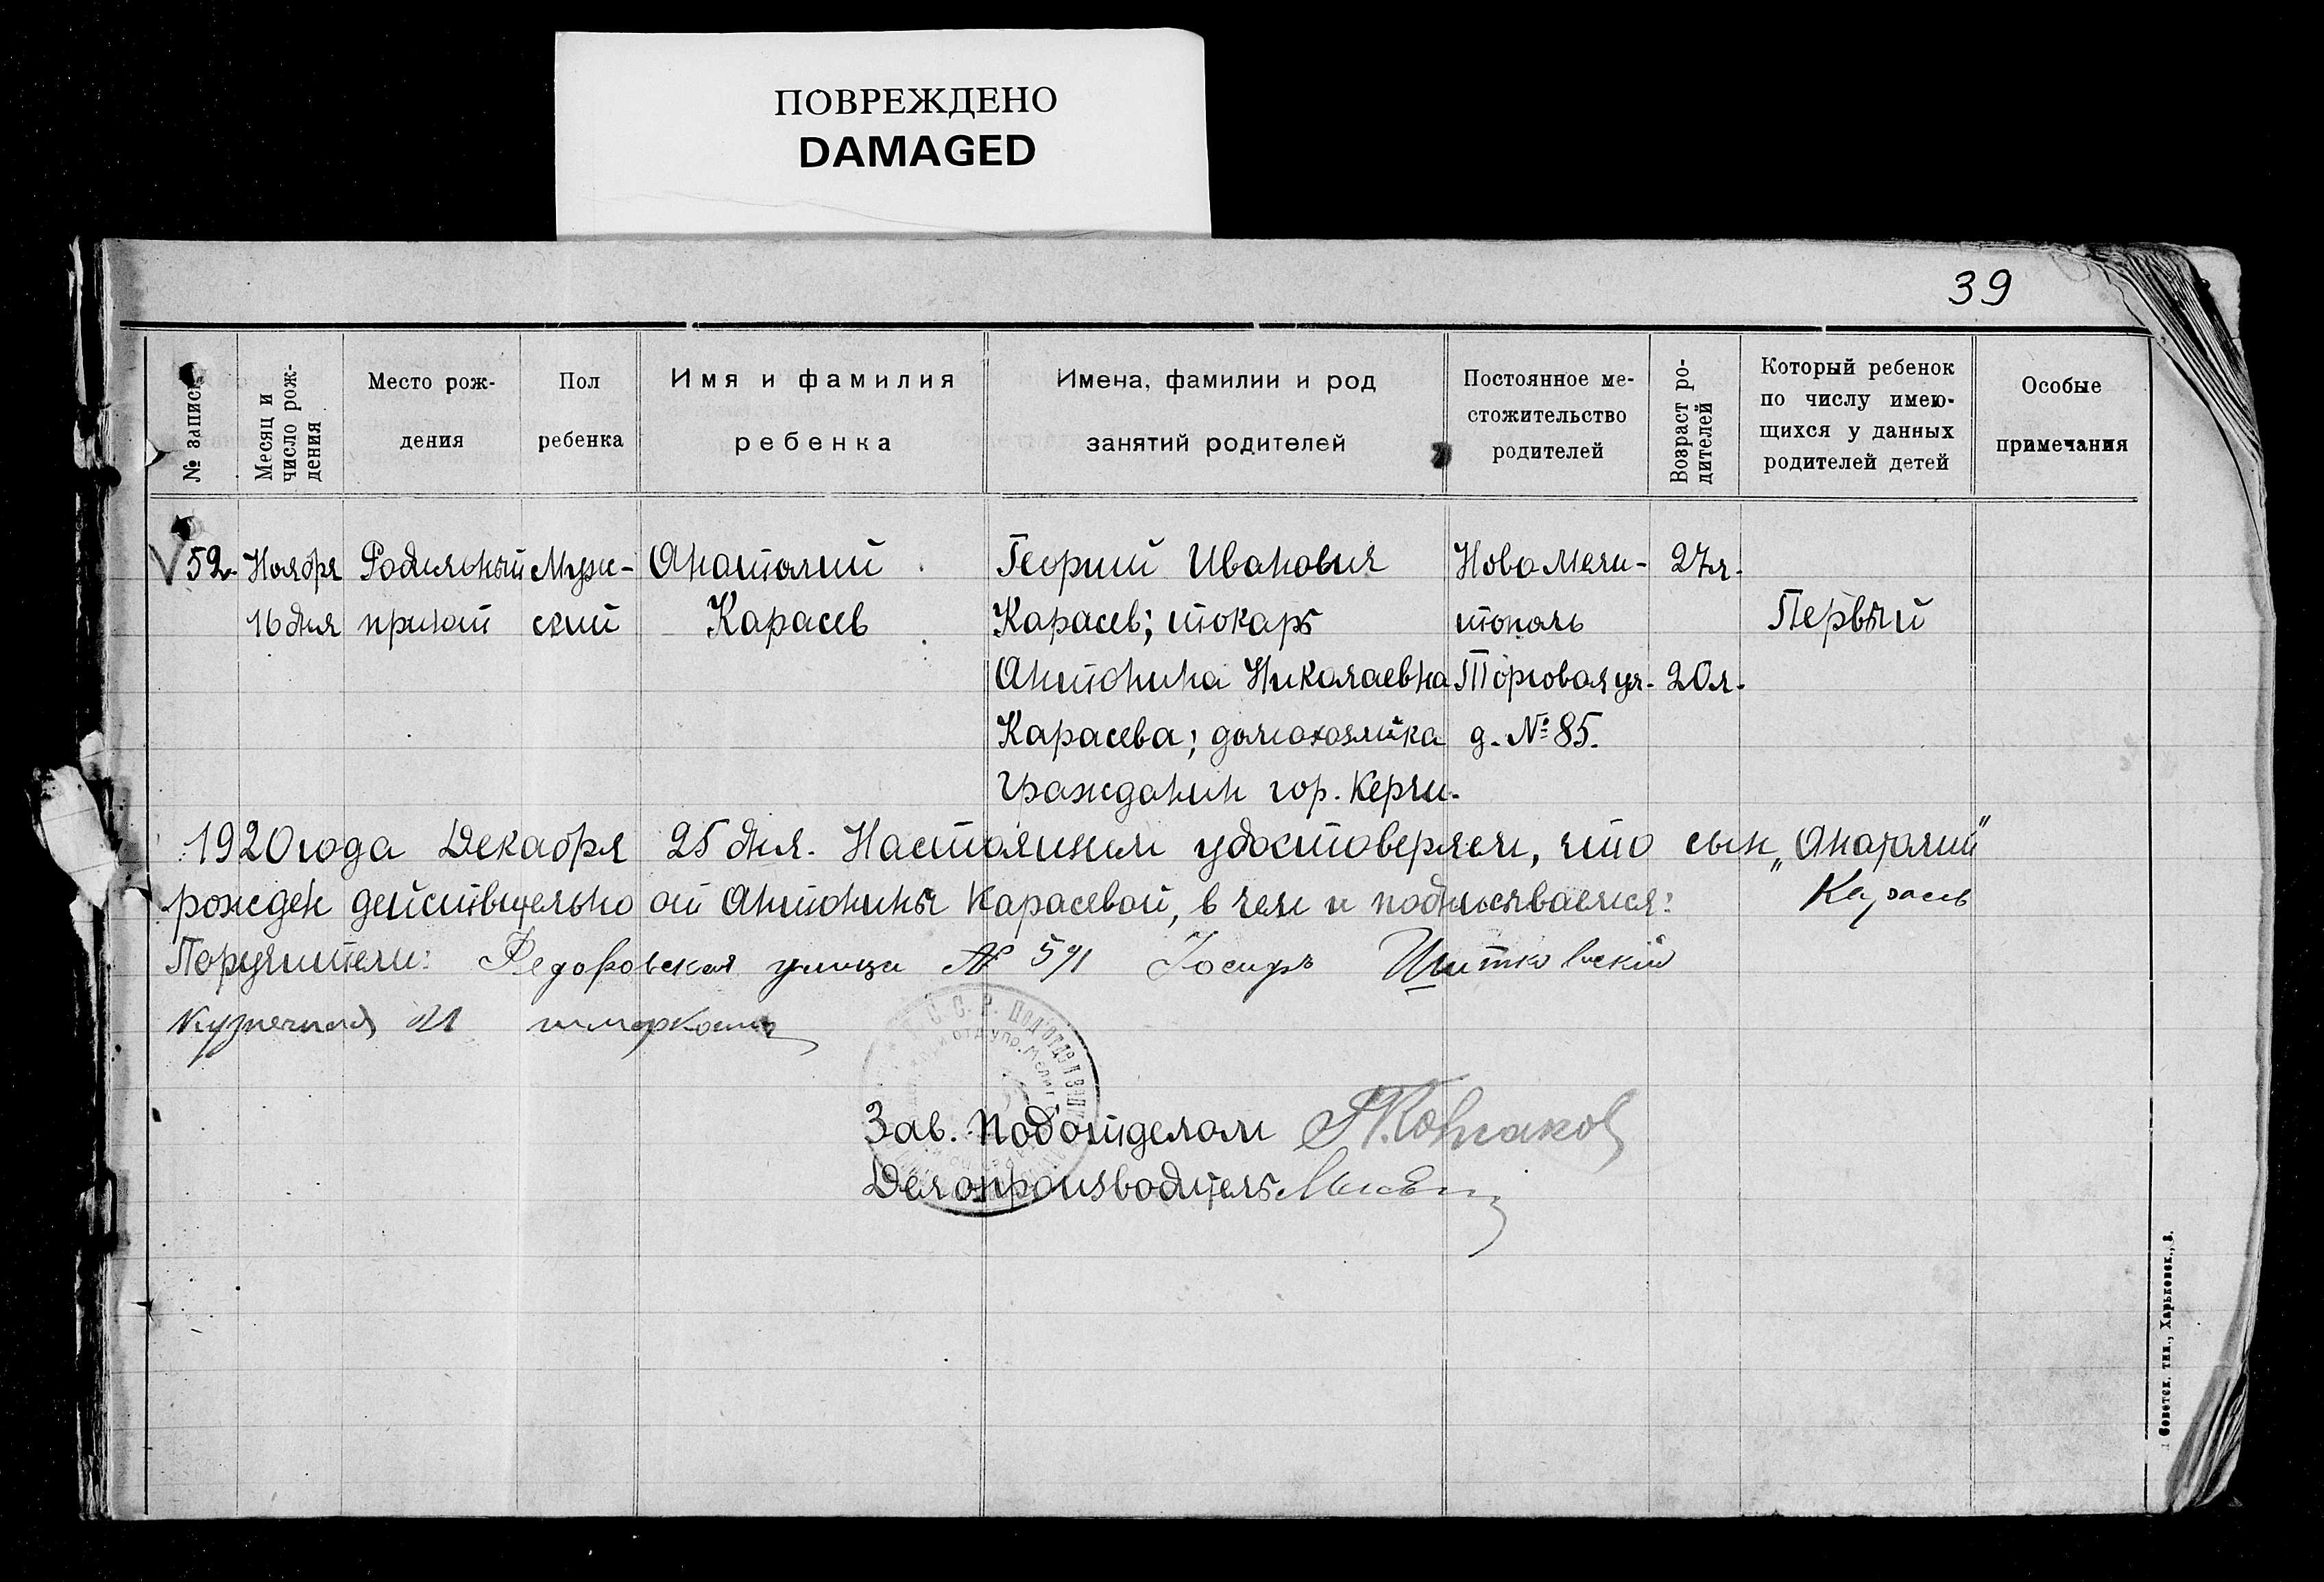 ПОВРЕЖДЕНО
DAMAGED
39
№ записи
Месяц и число рождения
Место рождения
Пол ребенка
Имя и фамилия ребенка
Имена, фамилии и род занятий родителей
Постоянное местожительство родителей
Возраст родителей
Который ребенок по числу имеющихся у данных родителей детей
Особые примечания
52. Ноября Родильный Муж- Анатолий Георгий Иванович Ново Мели- 27л.
16 дня приют ский Карасев Карасев; токарь тополь Первый
Антонина Николаевна Торговая ул. 20л.
Карасева; домохозяйка д. №85.
Гражданин гор. Керчи.
1920 года Декабря 25 дня. Настоящим удостоверяем, что сын „Анатолий“
рожден действительно от Антонины Карасевой, в чем и подписываемся: Карасев
Поручители: Федоровская улица № Иосиф
Кузнечная 21
С. С. Р. Под'отдел
Зав. Под'отделом
Делопроизводитель
Советск. тип., Харьковск., 8.